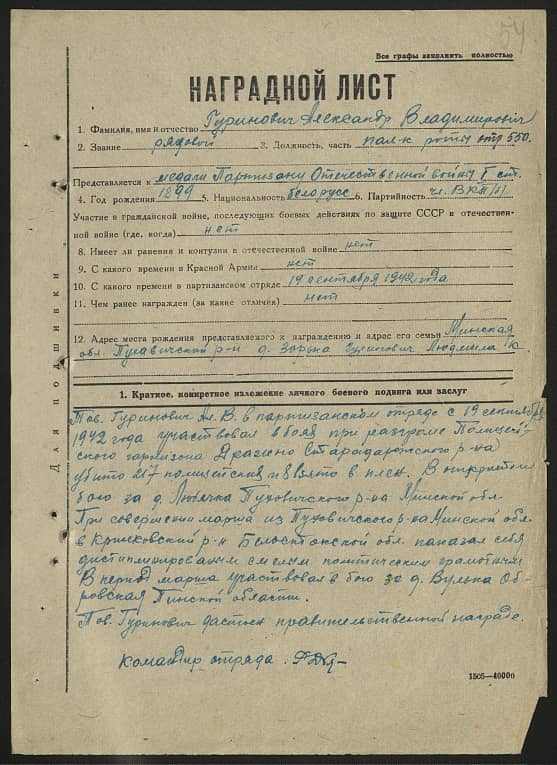 54
Все графы заполнять полностью
НАГРАДНОЙ ЛИСТ
1. Фамилия, имя и отчество Гуринович Александр Владимирович
2. Звание рядовой 3. Должность, часть пол-к роты отр 550
Представляется к медали Партизану Отечественной войны I ст.
4. Год рождения 1899 5. Национальность белорусс 6. Партийность чл. ВКП/б/
Участие в гражданской войне, последующих боевых действиях по защите СССР и отечествен-
ной войне (где, когда) нет
8. Имеет ли ранения и контузии в отечественной войне нет
9. С какого времени в Красной Армии нет
10. С какого времени в партизанском отряде 19 сентября 1942 года
11. Чем ранее награжден (за какие отличия) нет
12. Адрес места рождения представляемого к награждению и адрес его семьи Минская
обл. Пуховичский р-н д. Зорька Гуринович Людмила
Для подшивки
1. Краткое, конкретное изложение личного боевого подвига или заслуг
Тов. Гуринович Ал. В. в партизанском отряде с 19 сентября
1942 года участвовал в боях при разгроме Полицей-
ского гарнизона Дражно Стародорожского р-на
убито 217 полицейских и 8 взято в плен. В открытом
бою за д. Любячка Пуховичского р-на Минской обл.
При совершении марша из Пуховичского р-на Минской обл.
в Крынковский р-н Белостокской обл. показал себя
дистиплинированым смелым политически грамотным
В период марша участвовал в бою за д. Вулька Об-
ровская Пинской области.
Тов. Гуринович достоен правительственной награде.
командир отряда
1505—40000